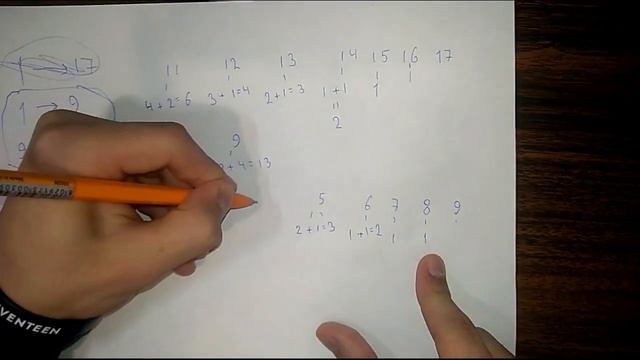 1 → 17
11 12 13 14 15 16 17
4+2=6 3+1=4 2+1=3 1+1 1 1
2
1 → 9
9
9+4=13
5 6 7 8 9
2+1=3 1+1=2 1 1
VENTEEN